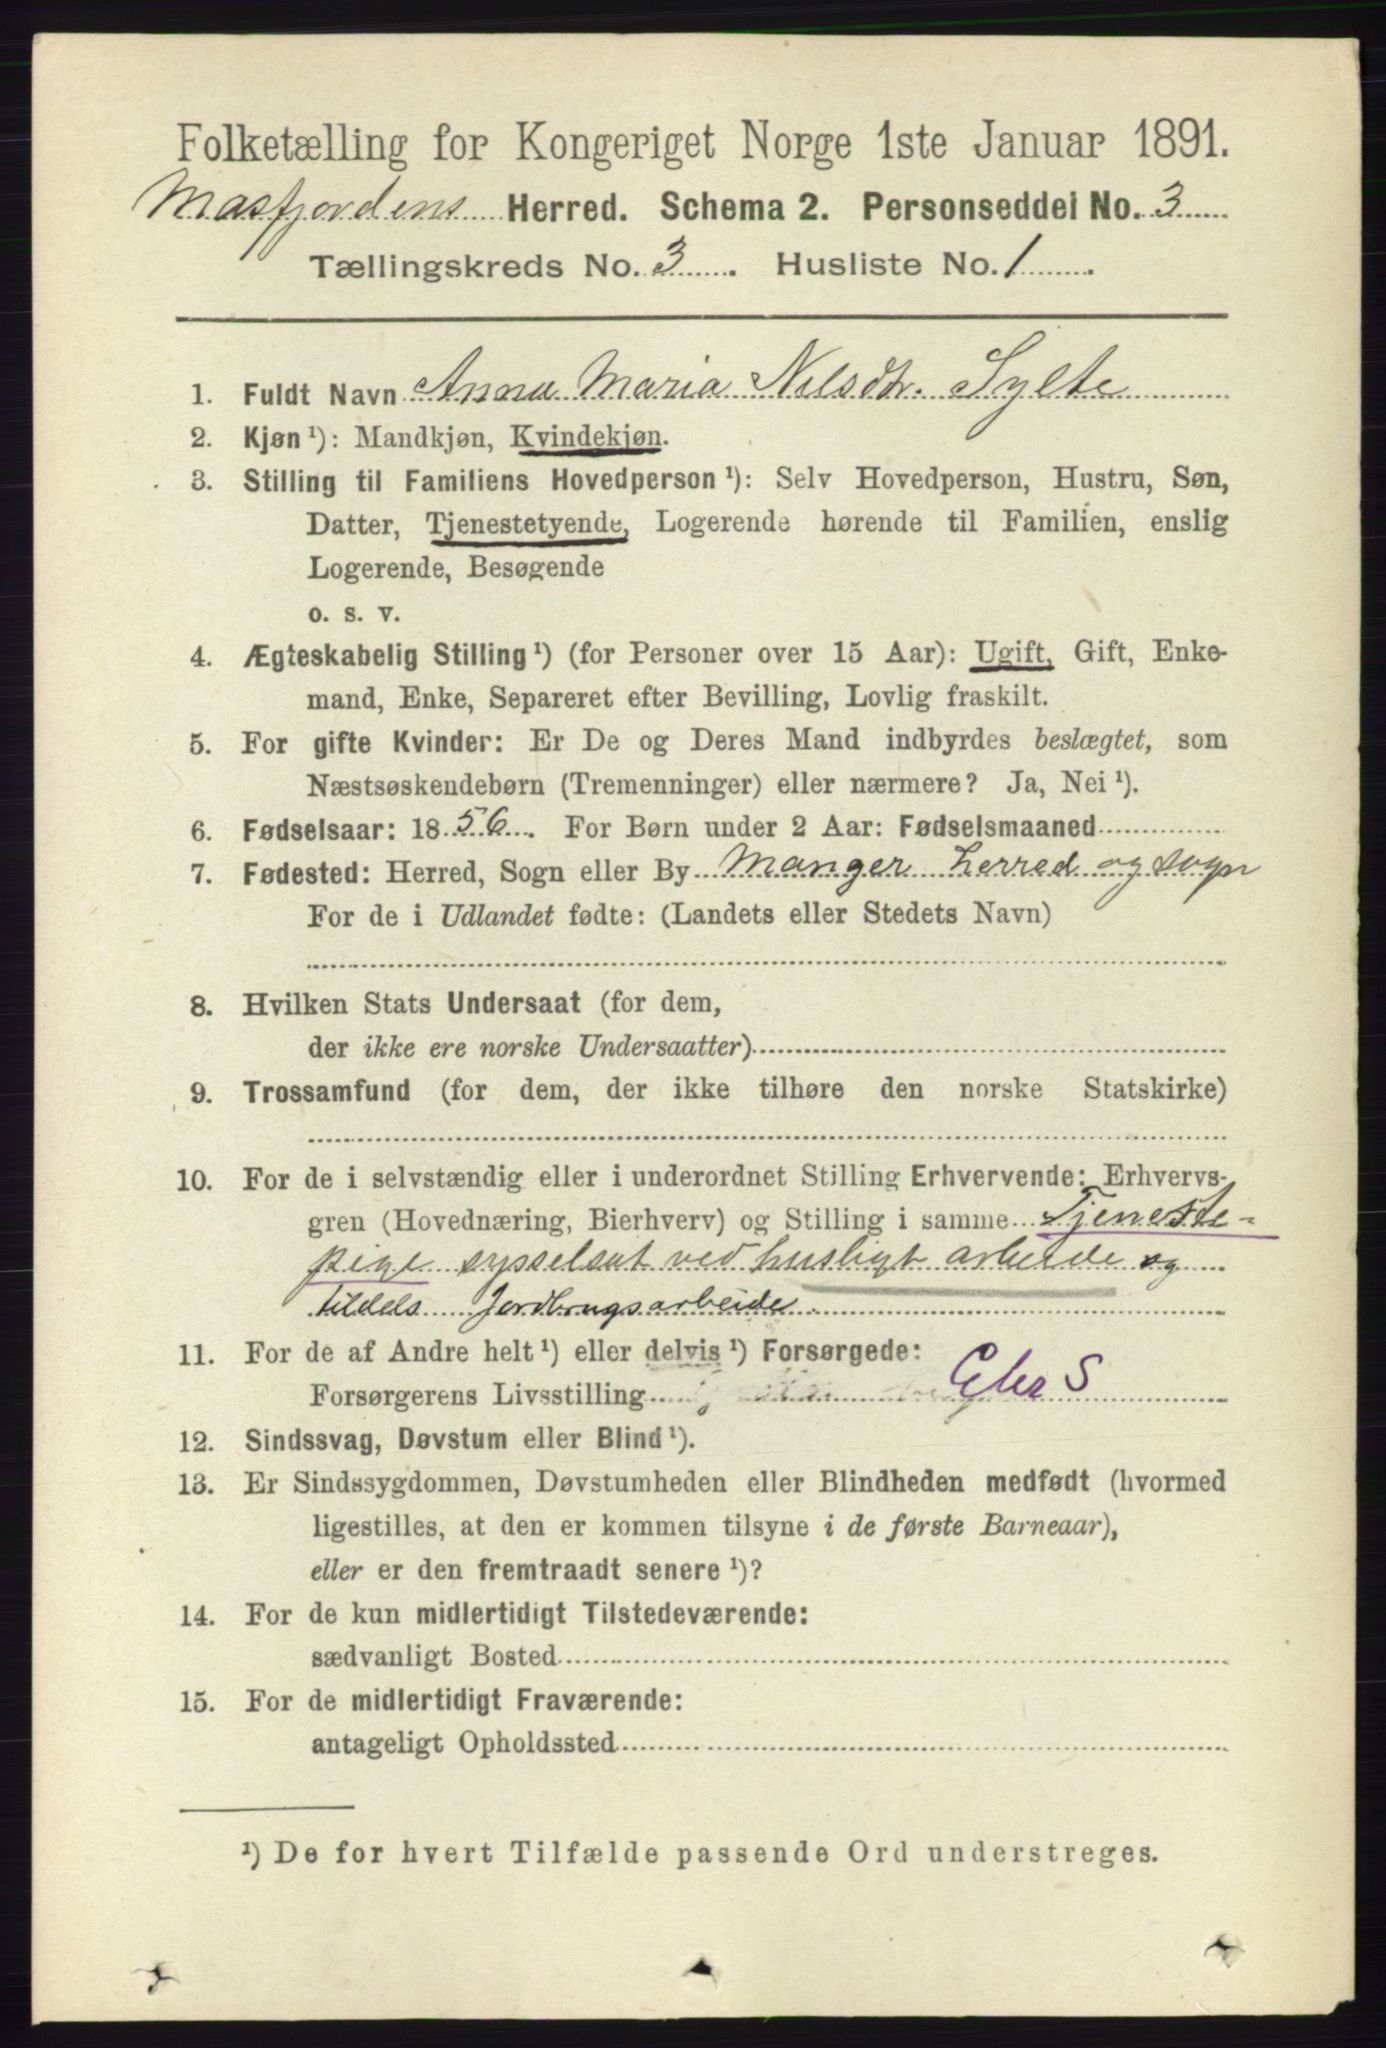 Folketælling for Kongeriget Norge 1ste Januar 1891.
Masfjordens Herred. Schema 2. Personseddel No. 3
Tællingskreds No. 3. Husliste No. 1.
1. Fuldt Navn Anna Maria Nilsdtr. Sylte
2. Kjøn ¹): Mandkjøn, Kvindekjøn.
3. Stilling til Familiens Hovedperson ¹): Selv Hovedperson, Hustru, Søn,
Datter, Tjenestetyende, Logerende hørende til Familien, enslig
Logerende, Besøgende
o. s. v.
4. Ægteskabelig Stilling ¹) (for Personer over 15 Aar): Ugift, Gift, Enke-
mand, Enke, Separeret efter Bevilling, Lovlig fraskilt.
5. For gifte Kvinder: Er De og Deres Mand indbyrdes beslægtet, som
Næstsøskendebørn (Tremenninger) eller nærmere? Ja, Nei ¹).
6. Fødselsaar: 1856. For Børn under 2 Aar: Fødselsmaaned
7. Fødested: Herred, Sogn eller By Manger herred og sogn
For de i Udlandet fødte: (Landets eller Stedets Navn)
8. Hvilken Stats Undersaat (for dem,
der ikke ere norske Undersaatter)
9. Trossamfund (for dem, der ikke tilhøre den norske Statskirke)
10. For de i selvstændig eller i underordnet Stilling Erhvervende: Erhvervs-
gren (Hovednæring, Bierhverv) og Stilling i samme Tjeneste-
pige sysselsat ved husligt arbeide og
tildels Jordbrugsarbeide.
11. For de af Andre helt ¹) eller delvis ¹) Forsørgede:
Forsørgerens Livsstilling
12. Sindssvag, Døvstum eller Blind ¹).
13. Er Sindssygdommen, Døvstumheden eller Blindheden medfødt (hvormed
ligestilles, at den er kommen tilsyne i de første Barneaar),
eller er den fremtraadt senere ¹)?
14. For de kun midlertidigt Tilstedeværende:
sædvanligt Bosted
15. For de midlertidigt Fraværende:
antageligt Opholdssted
¹) De for hvert Tilfælde passende Ord understreges.